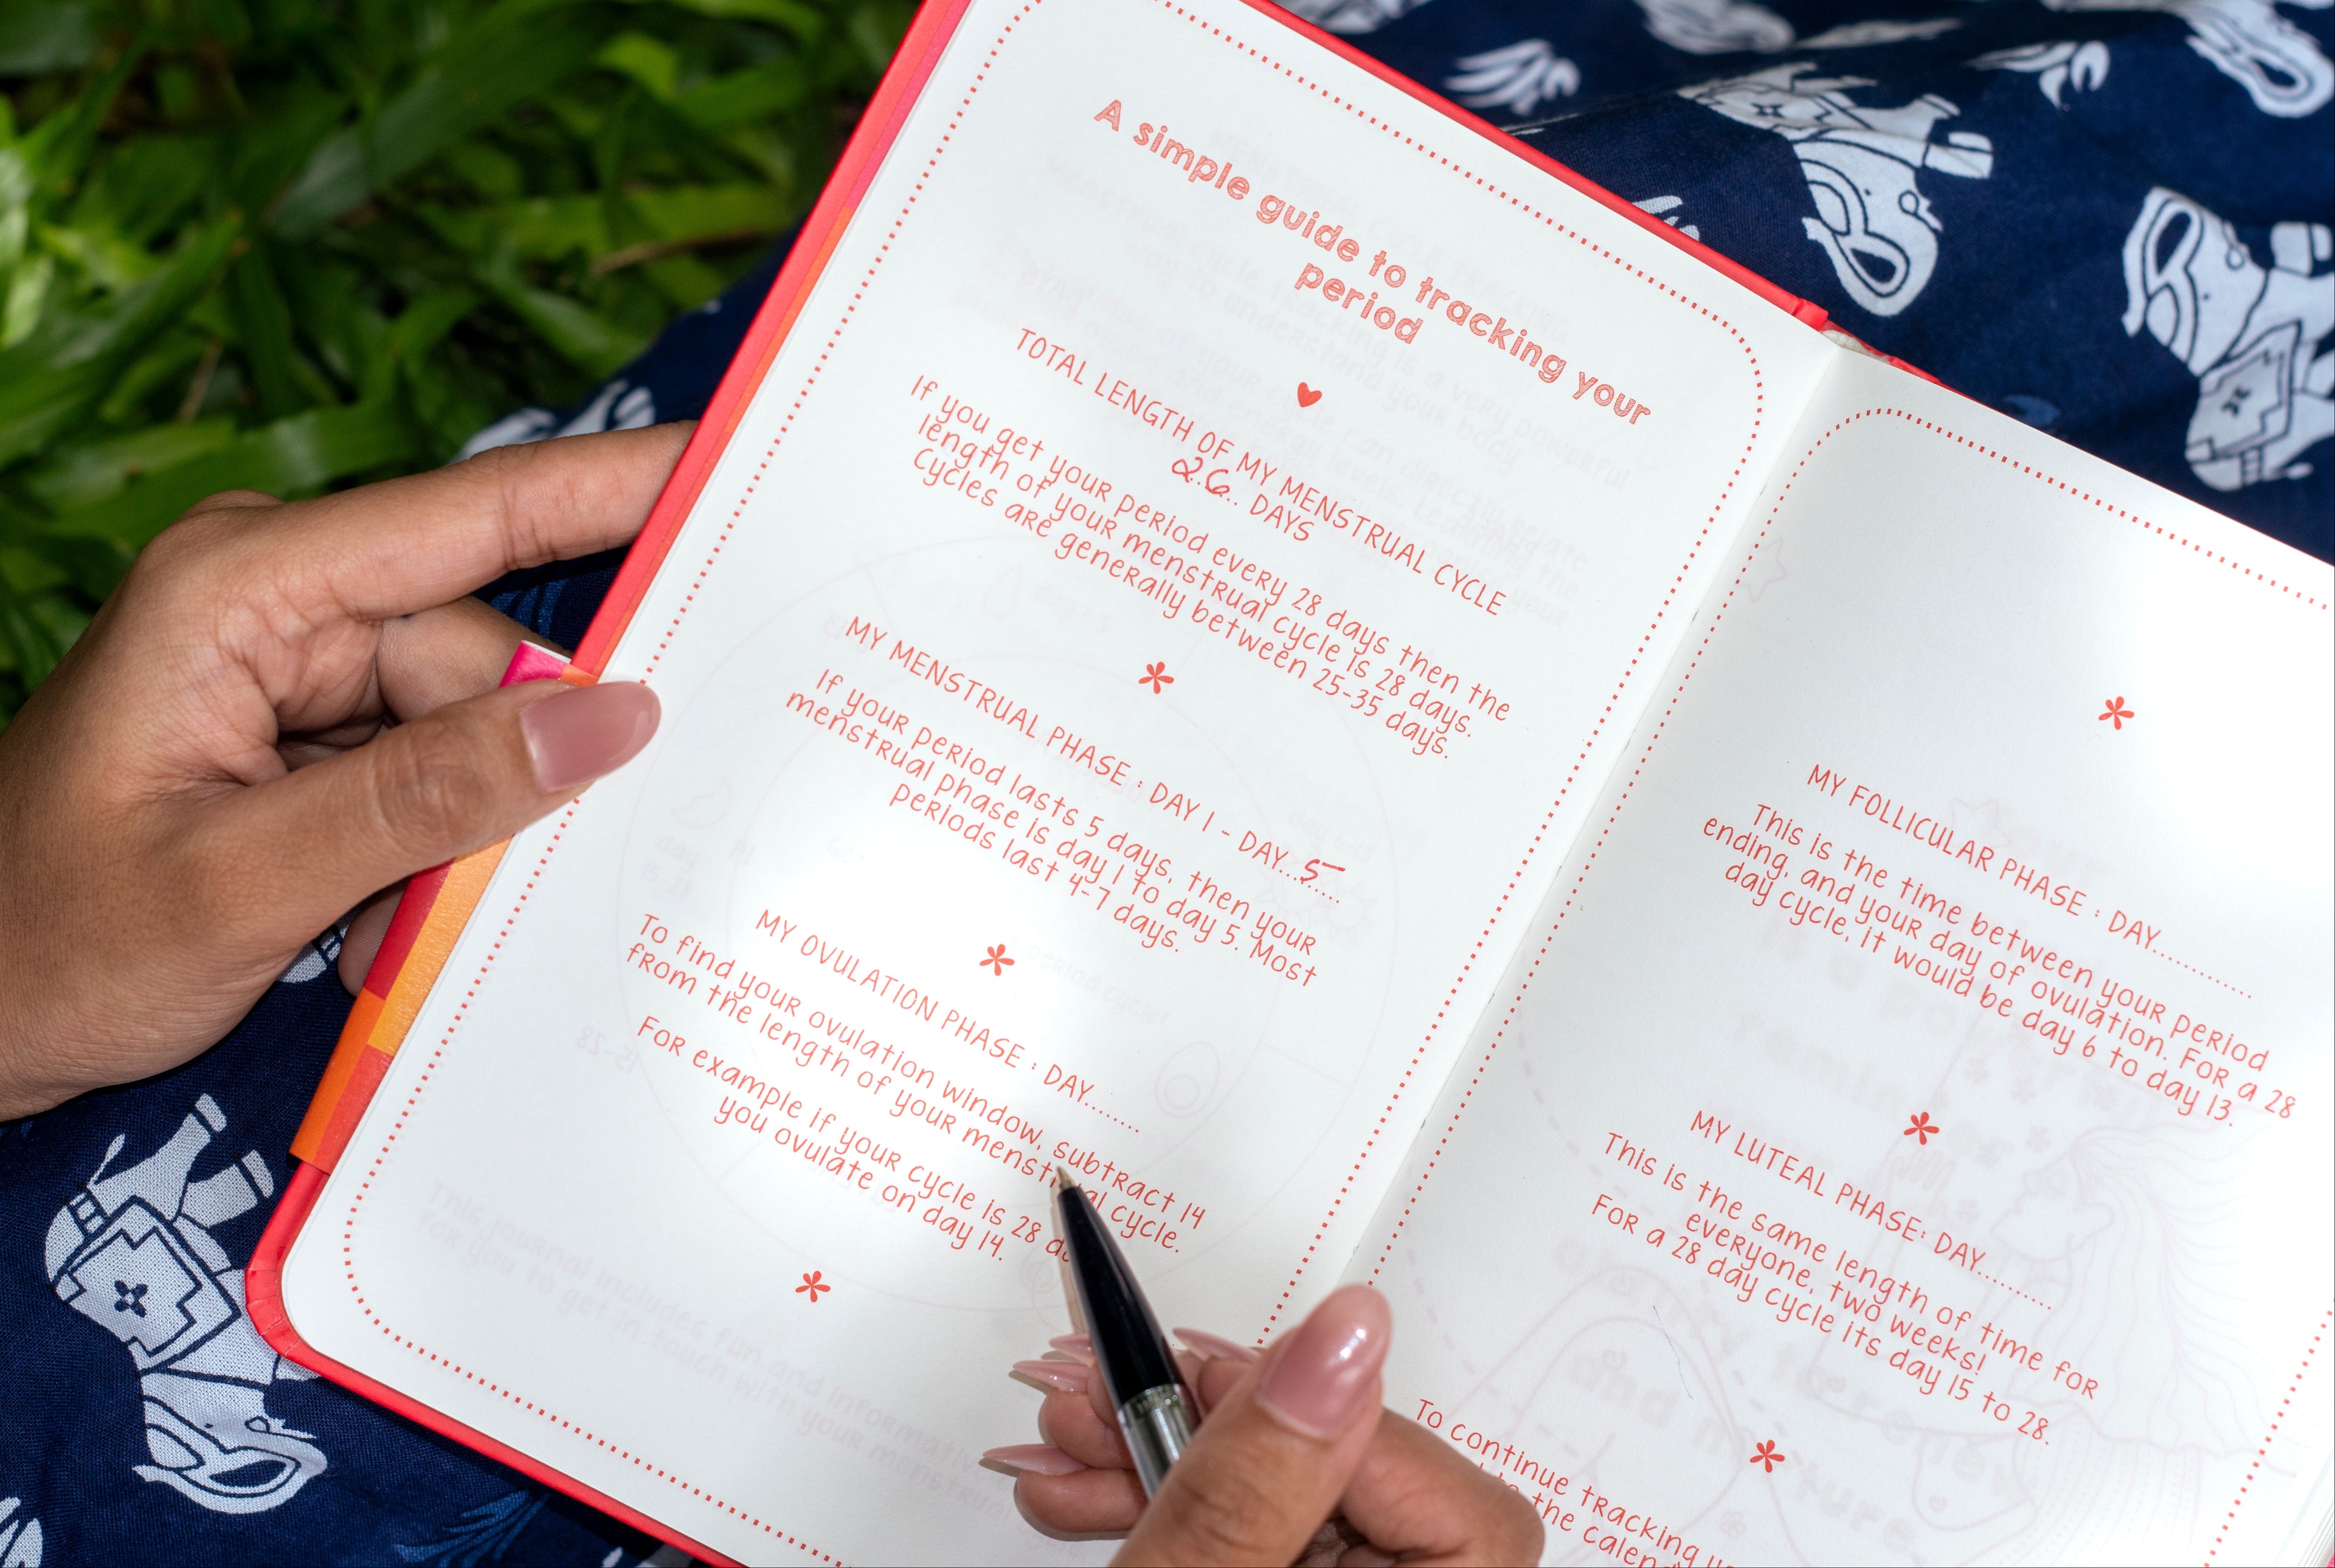 A simple guide to tracking your
period
TOTAL LENGTH OF MY MENSTRUAL CYCLE
26 DAYS
If you get your period every 28 days then the
length of your menstrual cycle is 28 days.
Cycles are generally between 25-35 days.
MY MENSTRUAL PHASE : DAY 1 - DAY...5...
If your period lasts 5 days, then your
menstrual phase is day 1 to day 5. Most
periods last 4-7 days.
MY OVULATION PHASE : DAY........
To find your ovulation window, subtract 14
from the length of your menstrual cycle.
For example if your cycle is 28
you ovulate on day 14.
MY FOLLICULAR PHASE : DAY..............
This is the time between your period
ending, and your day of ovulation. For a 28
day cycle, it would be day 6 to day 13.
MY LUTEAL PHASE: DAY...........
This is the same length of time for
everyone, two weeks!
For a 28 day cycle its day 15 to 28.
To continue tracking
the